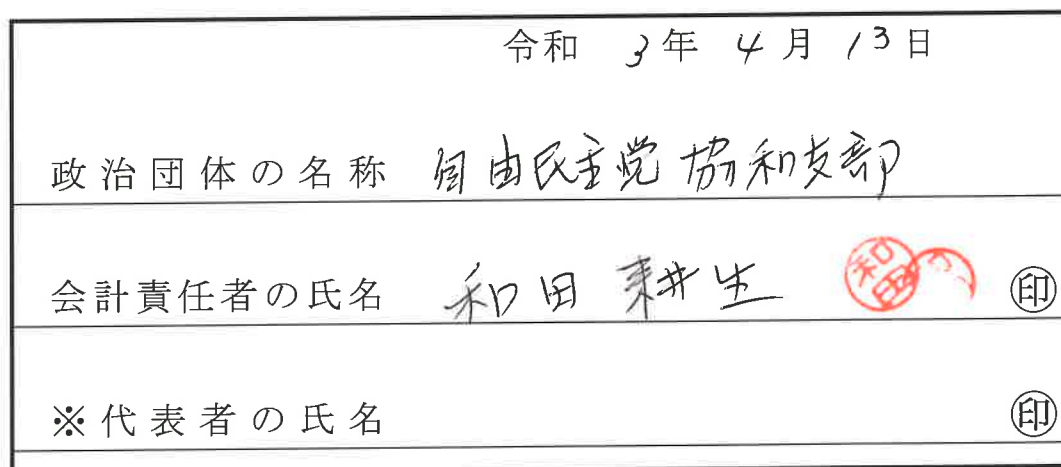 令和 3年 4月 13日
政治団体の名称 自由民主党協和支部
会計責任者の氏名 和田 耕生 和田 ㊞
※代表者の氏名 ㊞